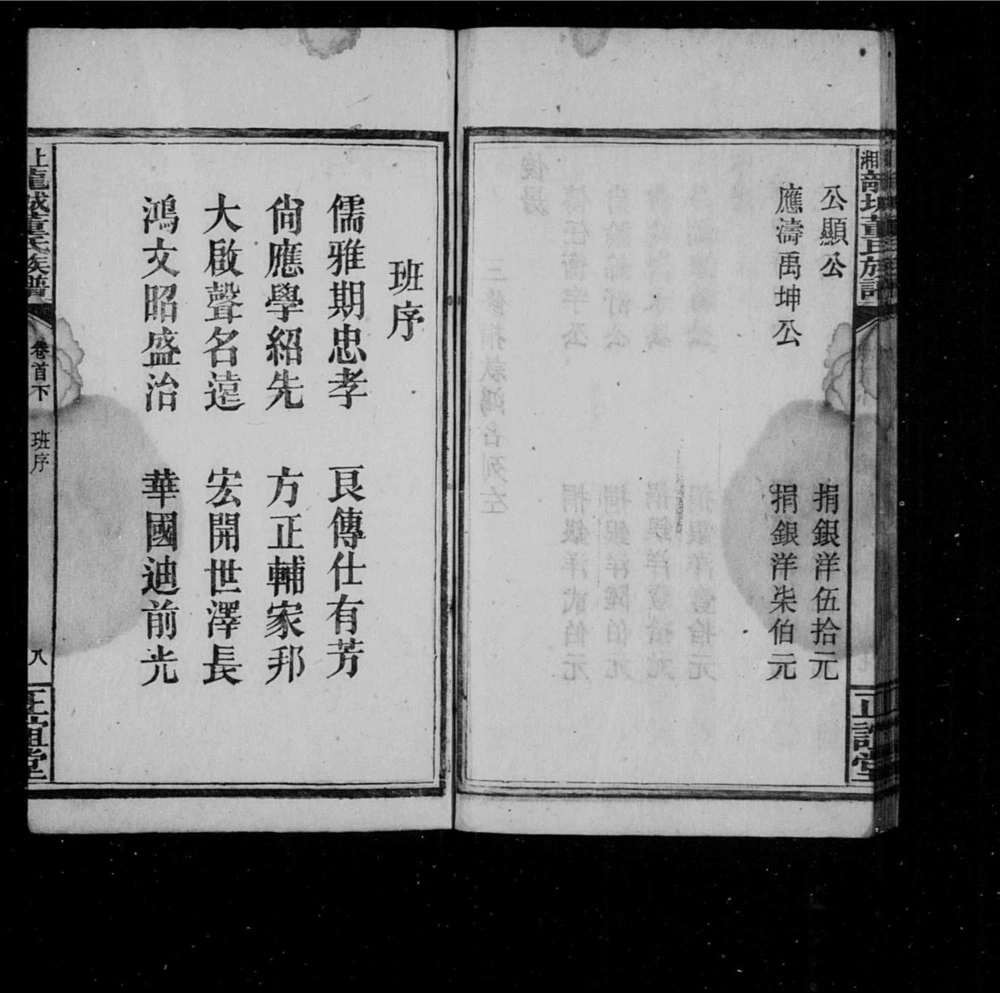 公顯公 捐銀洋伍拾元
應濤禹坤公 捐銀洋柒伯元
正誼堂
班序
儒雅期忠孝 良傳仕有芳
尙應學紹先 方正輔家邦
大啟聲名遠 宏開世澤長
鴻文昭盛治 華國迪前光
上龍城董氏族譜 卷首下 班序 八 正誼堂